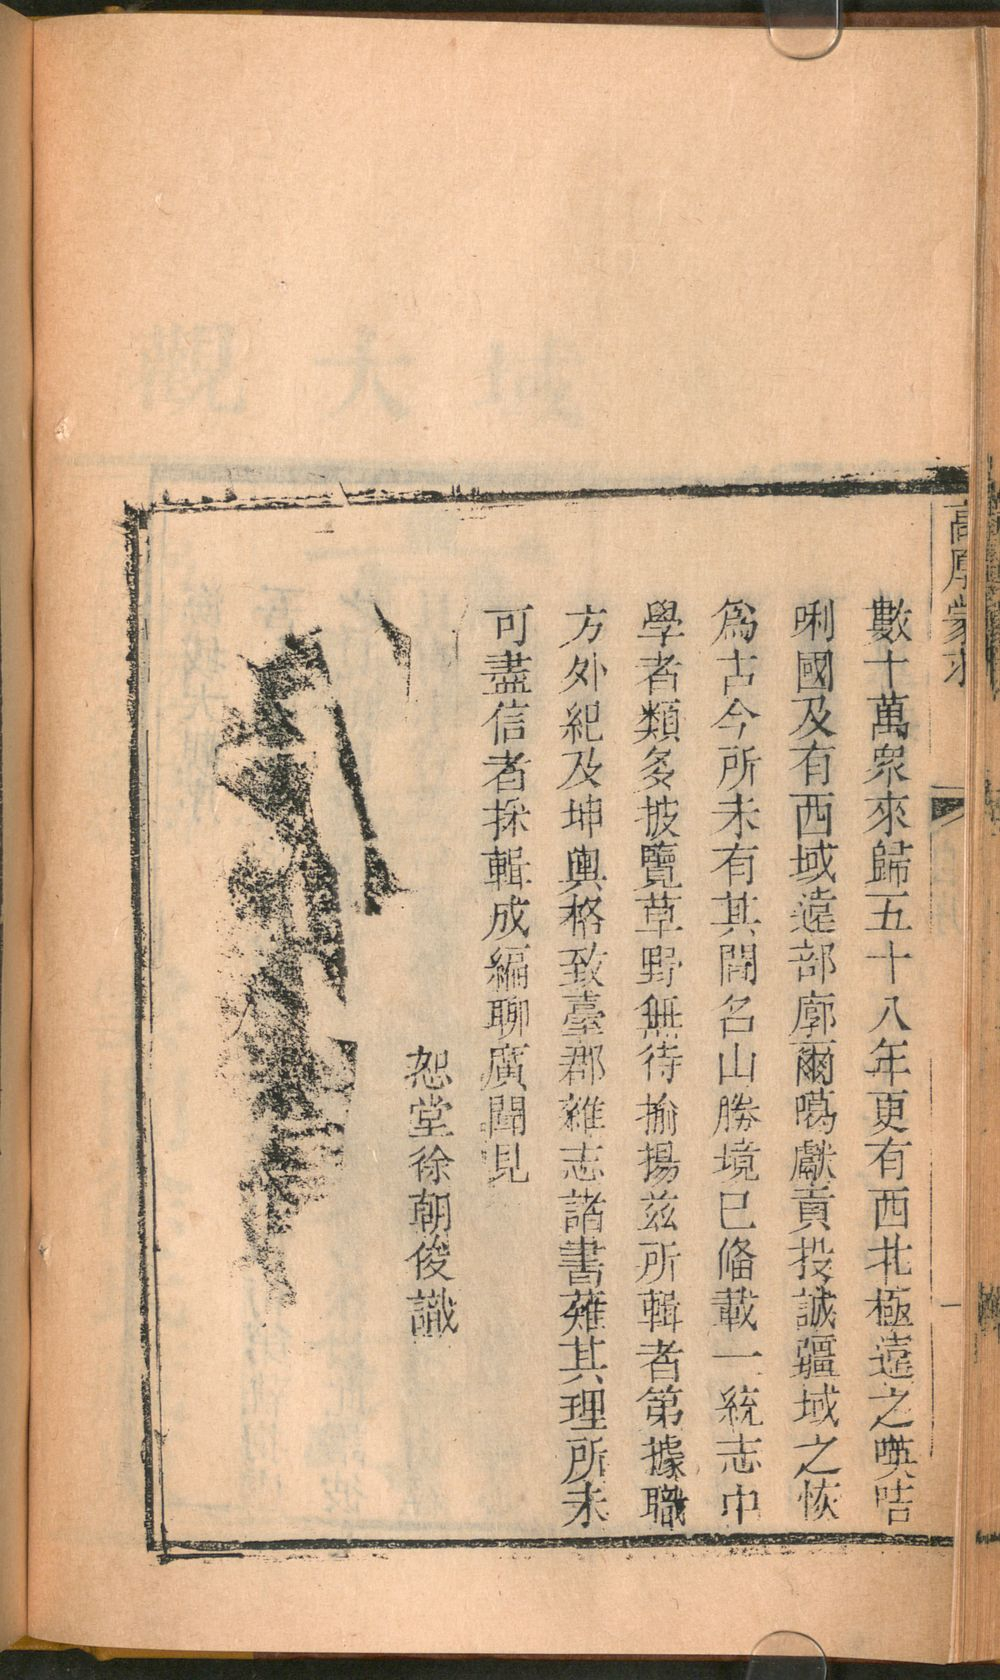 高厚蒙求
一
數十萬衆來歸五十八年更有西北極遠之㗲咭
唎國及有西域遠部廓爾噶獻貢投誠疆域之恢
爲古今所未有其間名山勝境已備載一統志中
學者類多披覽草野無待揄揚茲所輯者第據職
方外紀及坤輿格致臺郡雜志諸書雖其理所未
可盡信者採輯成編聊廣聞見
恕堂徐朝俊識